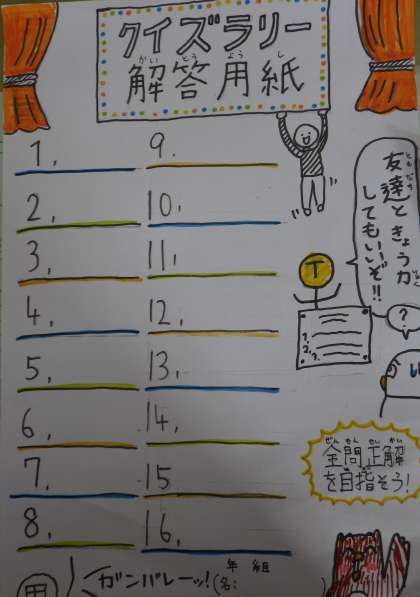 クイズラリー
かい とう よう し
解答用紙
1.
2.
3.
4.
5.
6.
7.
8.
9.
10.
11.
12.
13.
14.
15
16.
ともだち
友達ときょうりょく
してもいいぞ!!
T
1.
2.
?
ぜん もん せい かい
全問正解
を目指そう!
ガンバレーッ!
年 組
(名: